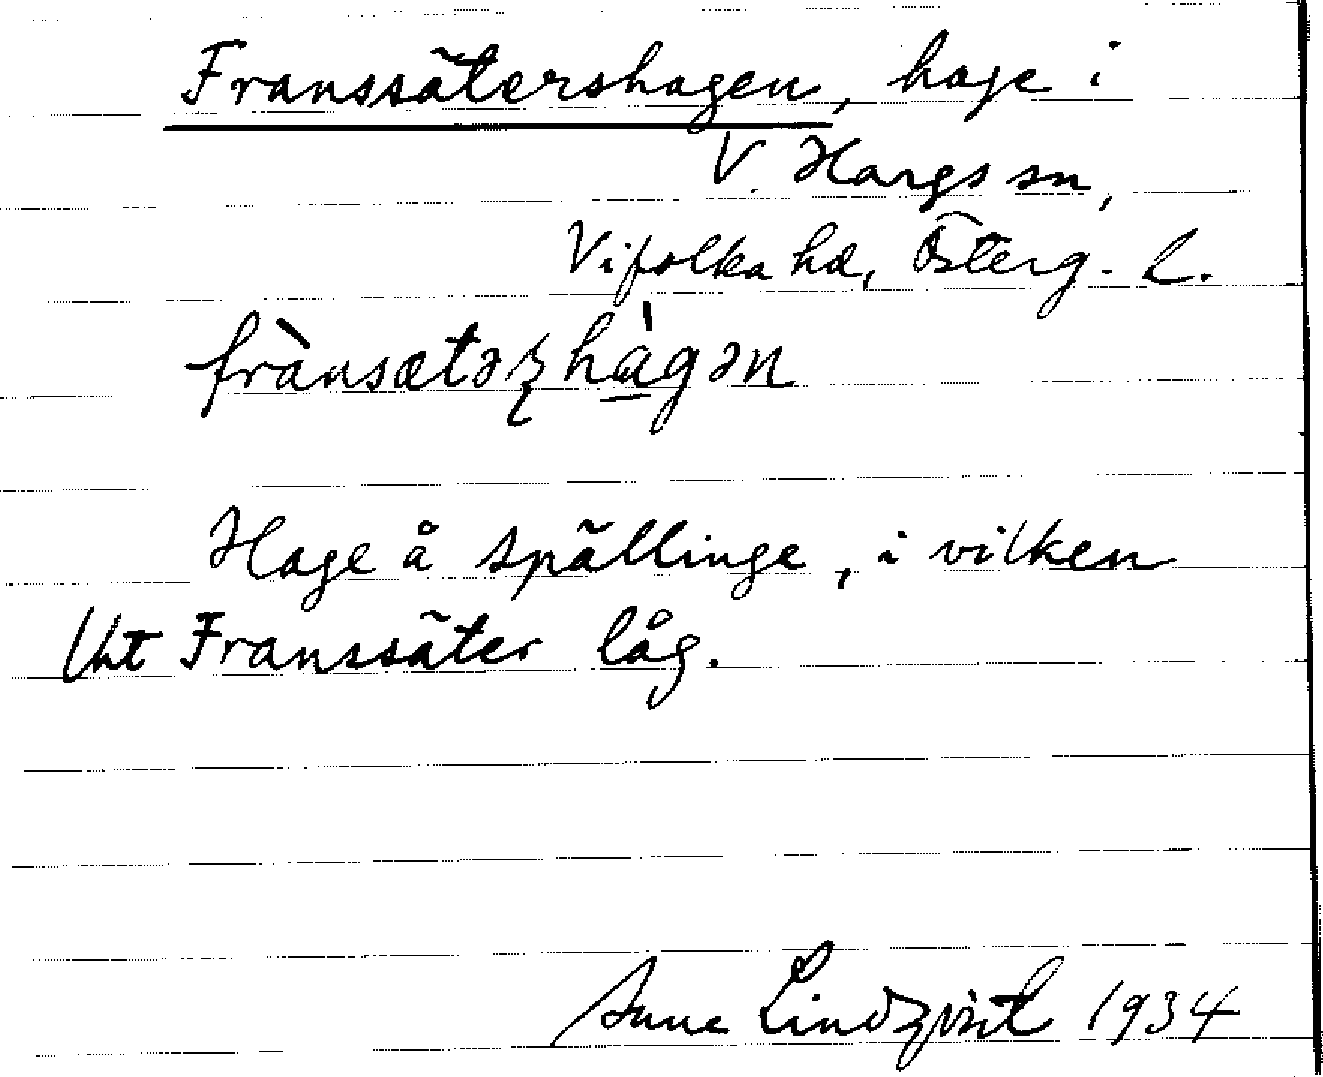 Franssätershagen, hage i
V. Hargs sn,
Vifolka hd, Österg. l.
frànsætəʂhàgən
Hage å Spällinge, i vilken
lht Franssäter låg.
Sune Lindqvist 1934